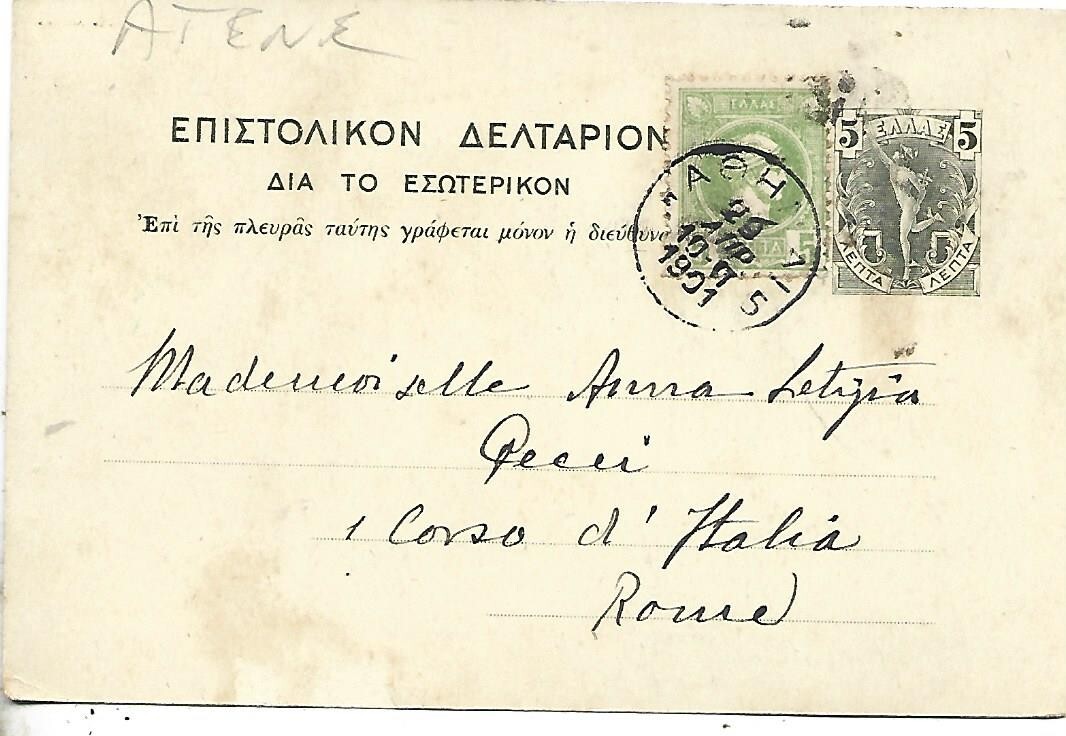 ΑΤΕΝΕ
ΕΠΙΣΤΟΛΙΚΟΝ ΔΕΛΤΑΡΙΟΝ
ΔΙΑ ΤΟ ΕΣΩΤΕΡΙΚΟΝ
Ἐπὶ τῆς πλευρᾶς ταύτης γράφεται μόνον ἡ διεύθυνσ
ΕΛΛΑΣ
5
5 ΕΛΛΑΣ 5
ΛΕΠΤΑ ΛΕΠΤΑ
ΑΘΗΝΑΙ 5
ΑΠΡ
10-Π
1901
Mademoiselle Anna Letizia
Pecci
1 Corso d'Italia
Rome